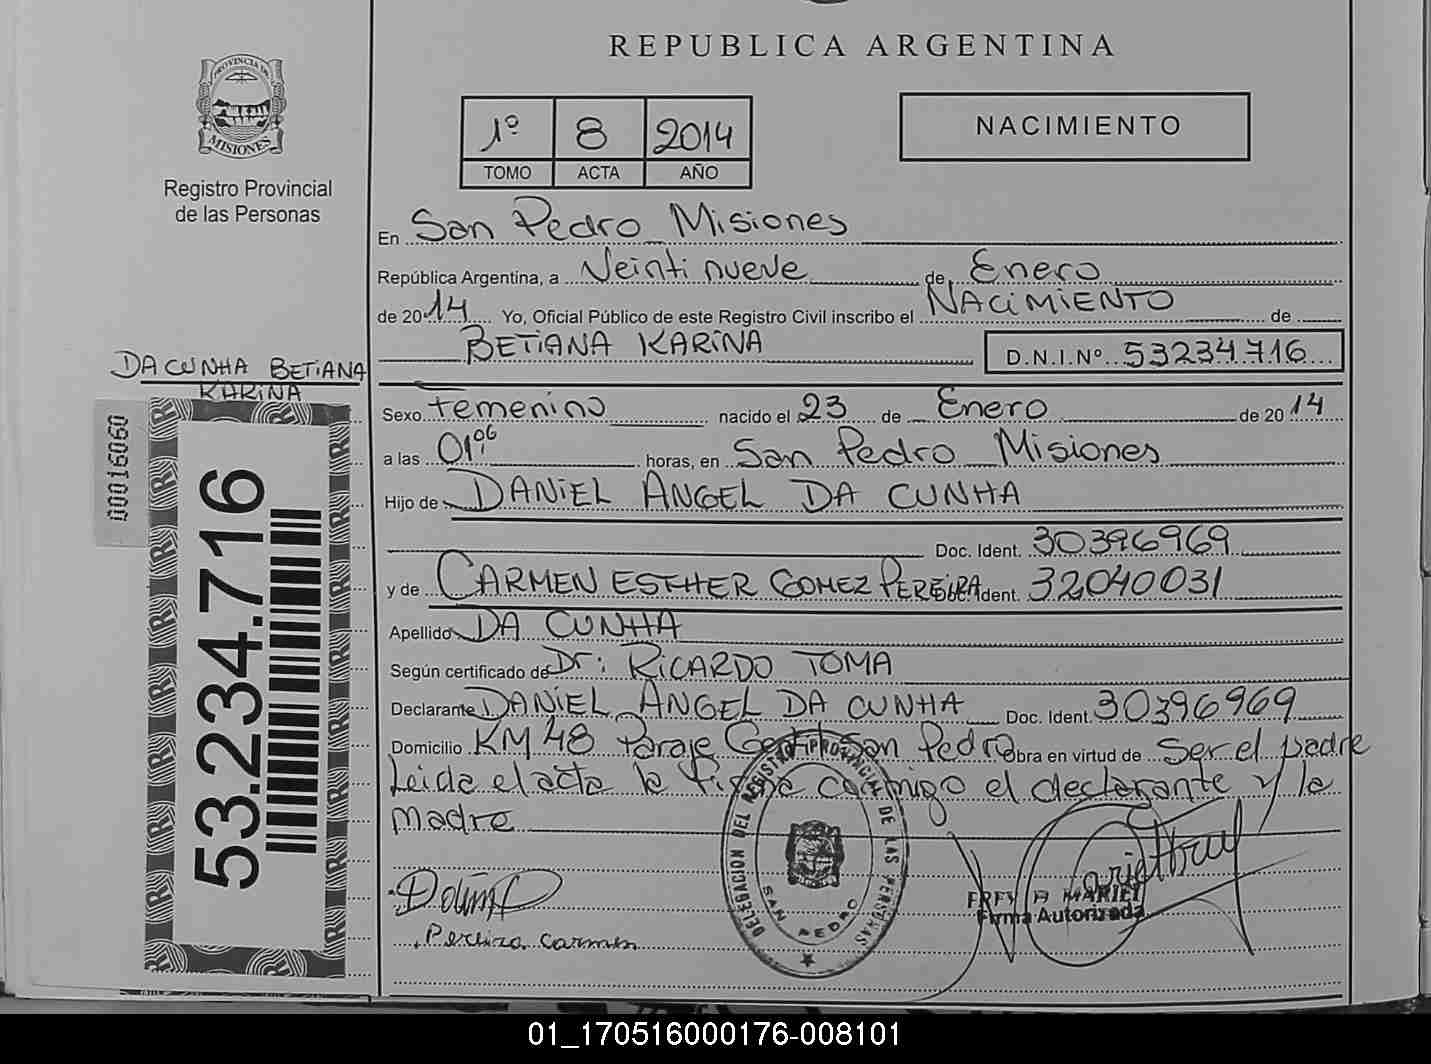 REPUBLICA ARGENTINA
PROVINCIA DE
MISIONES
Registro Provincial
de las Personas
1º 8 2014
TOMO ACTA AÑO
NACIMIENTO
En San Pedro Misiones
República Argentina, a Veinti nueve de Enero
de 2014 Yo, Oficial Público de este Registro Civil inscribo el NACIMIENTO de
BETIANA KARINA D.N.I.Nº 53234716
DA CUNHA BETIANA
KARINA
Sexo Femenino nacido el 23 de Enero de 2014
a las 01:06 horas, en San Pedro Misiones
Hijo de DANIEL ANGEL DA CUNHA
Doc. Ident. 30396969
y de CARMEN ESTHER GOMEZ PEREIRA Ident. 32040031
Apellido DA CUNHA
Según certificado de Dr: RICARDO TOMA
Declarante DANIEL ANGEL DA CUNHA Doc. Ident. 30396969
Domicilio KM 48 Paraje Gentil San Pedro Obra en virtud de Ser el padre
Leida el acta la firma conmigo el declarante y la
madre
00016060
53.234.716
DELEGACION DEL REGISTRO PROVINCIAL DE LAS PERSONAS
SAN PEDRO
MARIEL
Firma Autorizada
Pereira Carmen
01_170516000176-008101